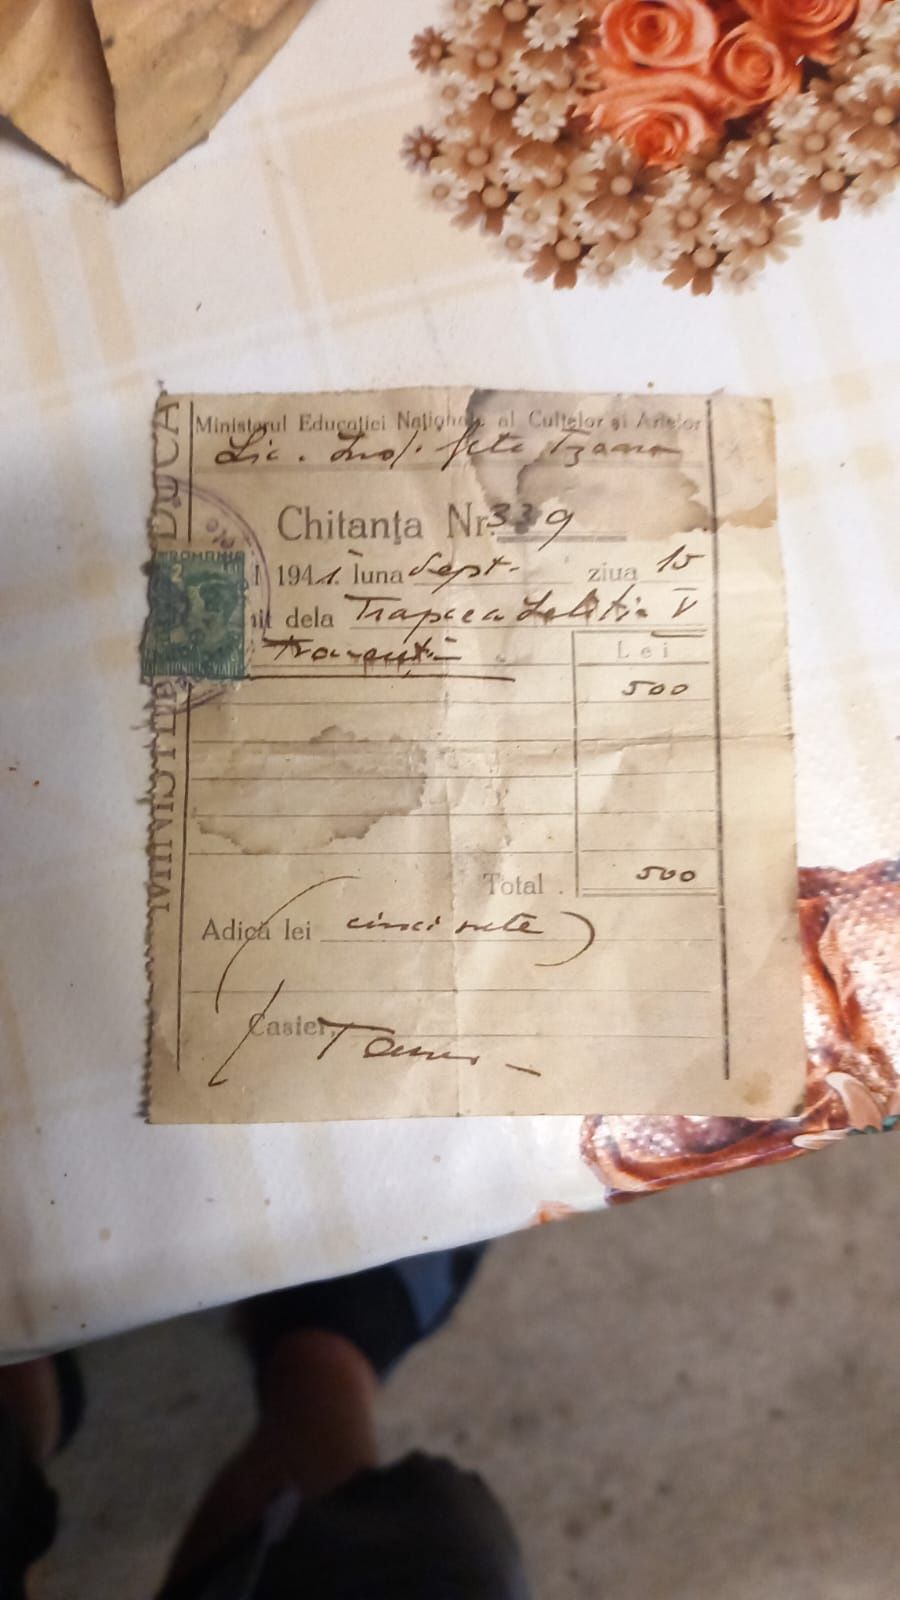 Ministerul Educației Naționale al Cultelor și Artelor
Lic. Ind. fete
Chitanța Nr. 339
1941 luna Sept. ziua 15
dela Trapcea Letiția V
Lei
500
Total . 500
Adică lei (cinci sute)
Casier,
ROMANIA
2